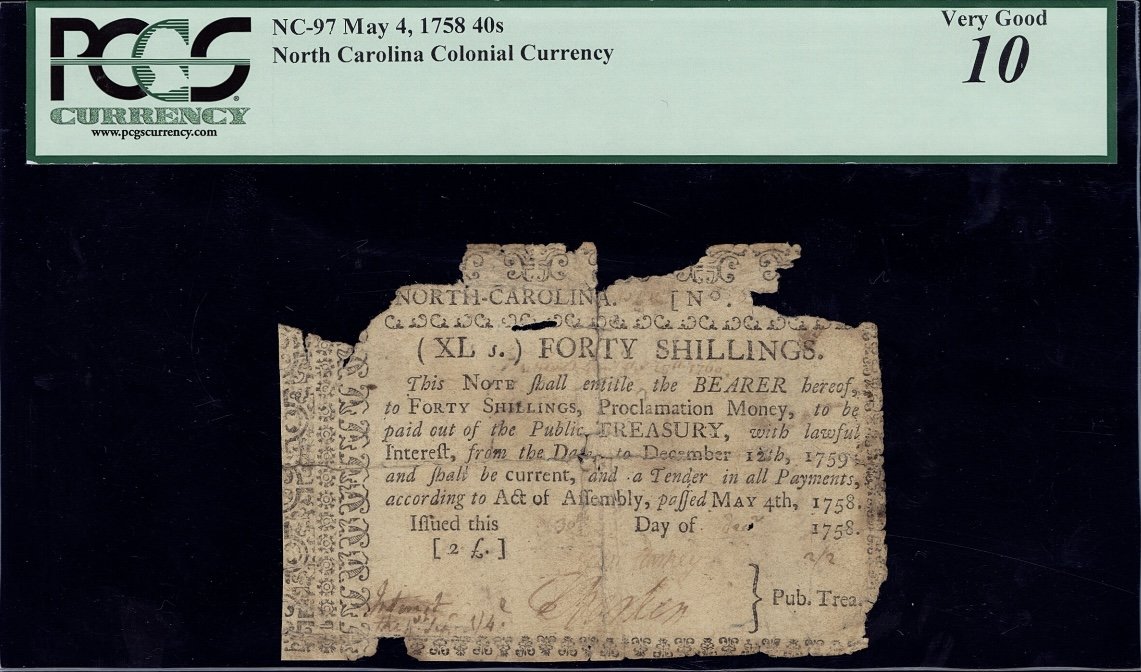 PCGS
CURRENCY
www.pcgscurrency.com
NC-97 May 4, 1758 40s
North Carolina Colonial Currency
Very Good
10
NORTH-CAROLINA. [ Nº.
( XL s. ) FORTY SHILLINGS.
This NOTE ſhall entitle the BEARER hereof,
to FORTY SHILLINGS, Proclamation Money, to be
paid out of the Public TREASURY, with lawful
Intereſt, from the Date to December 12th, 1759;
and ſhall be current, and a Tender in all Payments,
according to Act of Aſſembly, paſſed MAY 4th, 1758.
Iſſued this Day of 1758.
[ 2 £. ]
2/2
Pub. Trea.
Interest